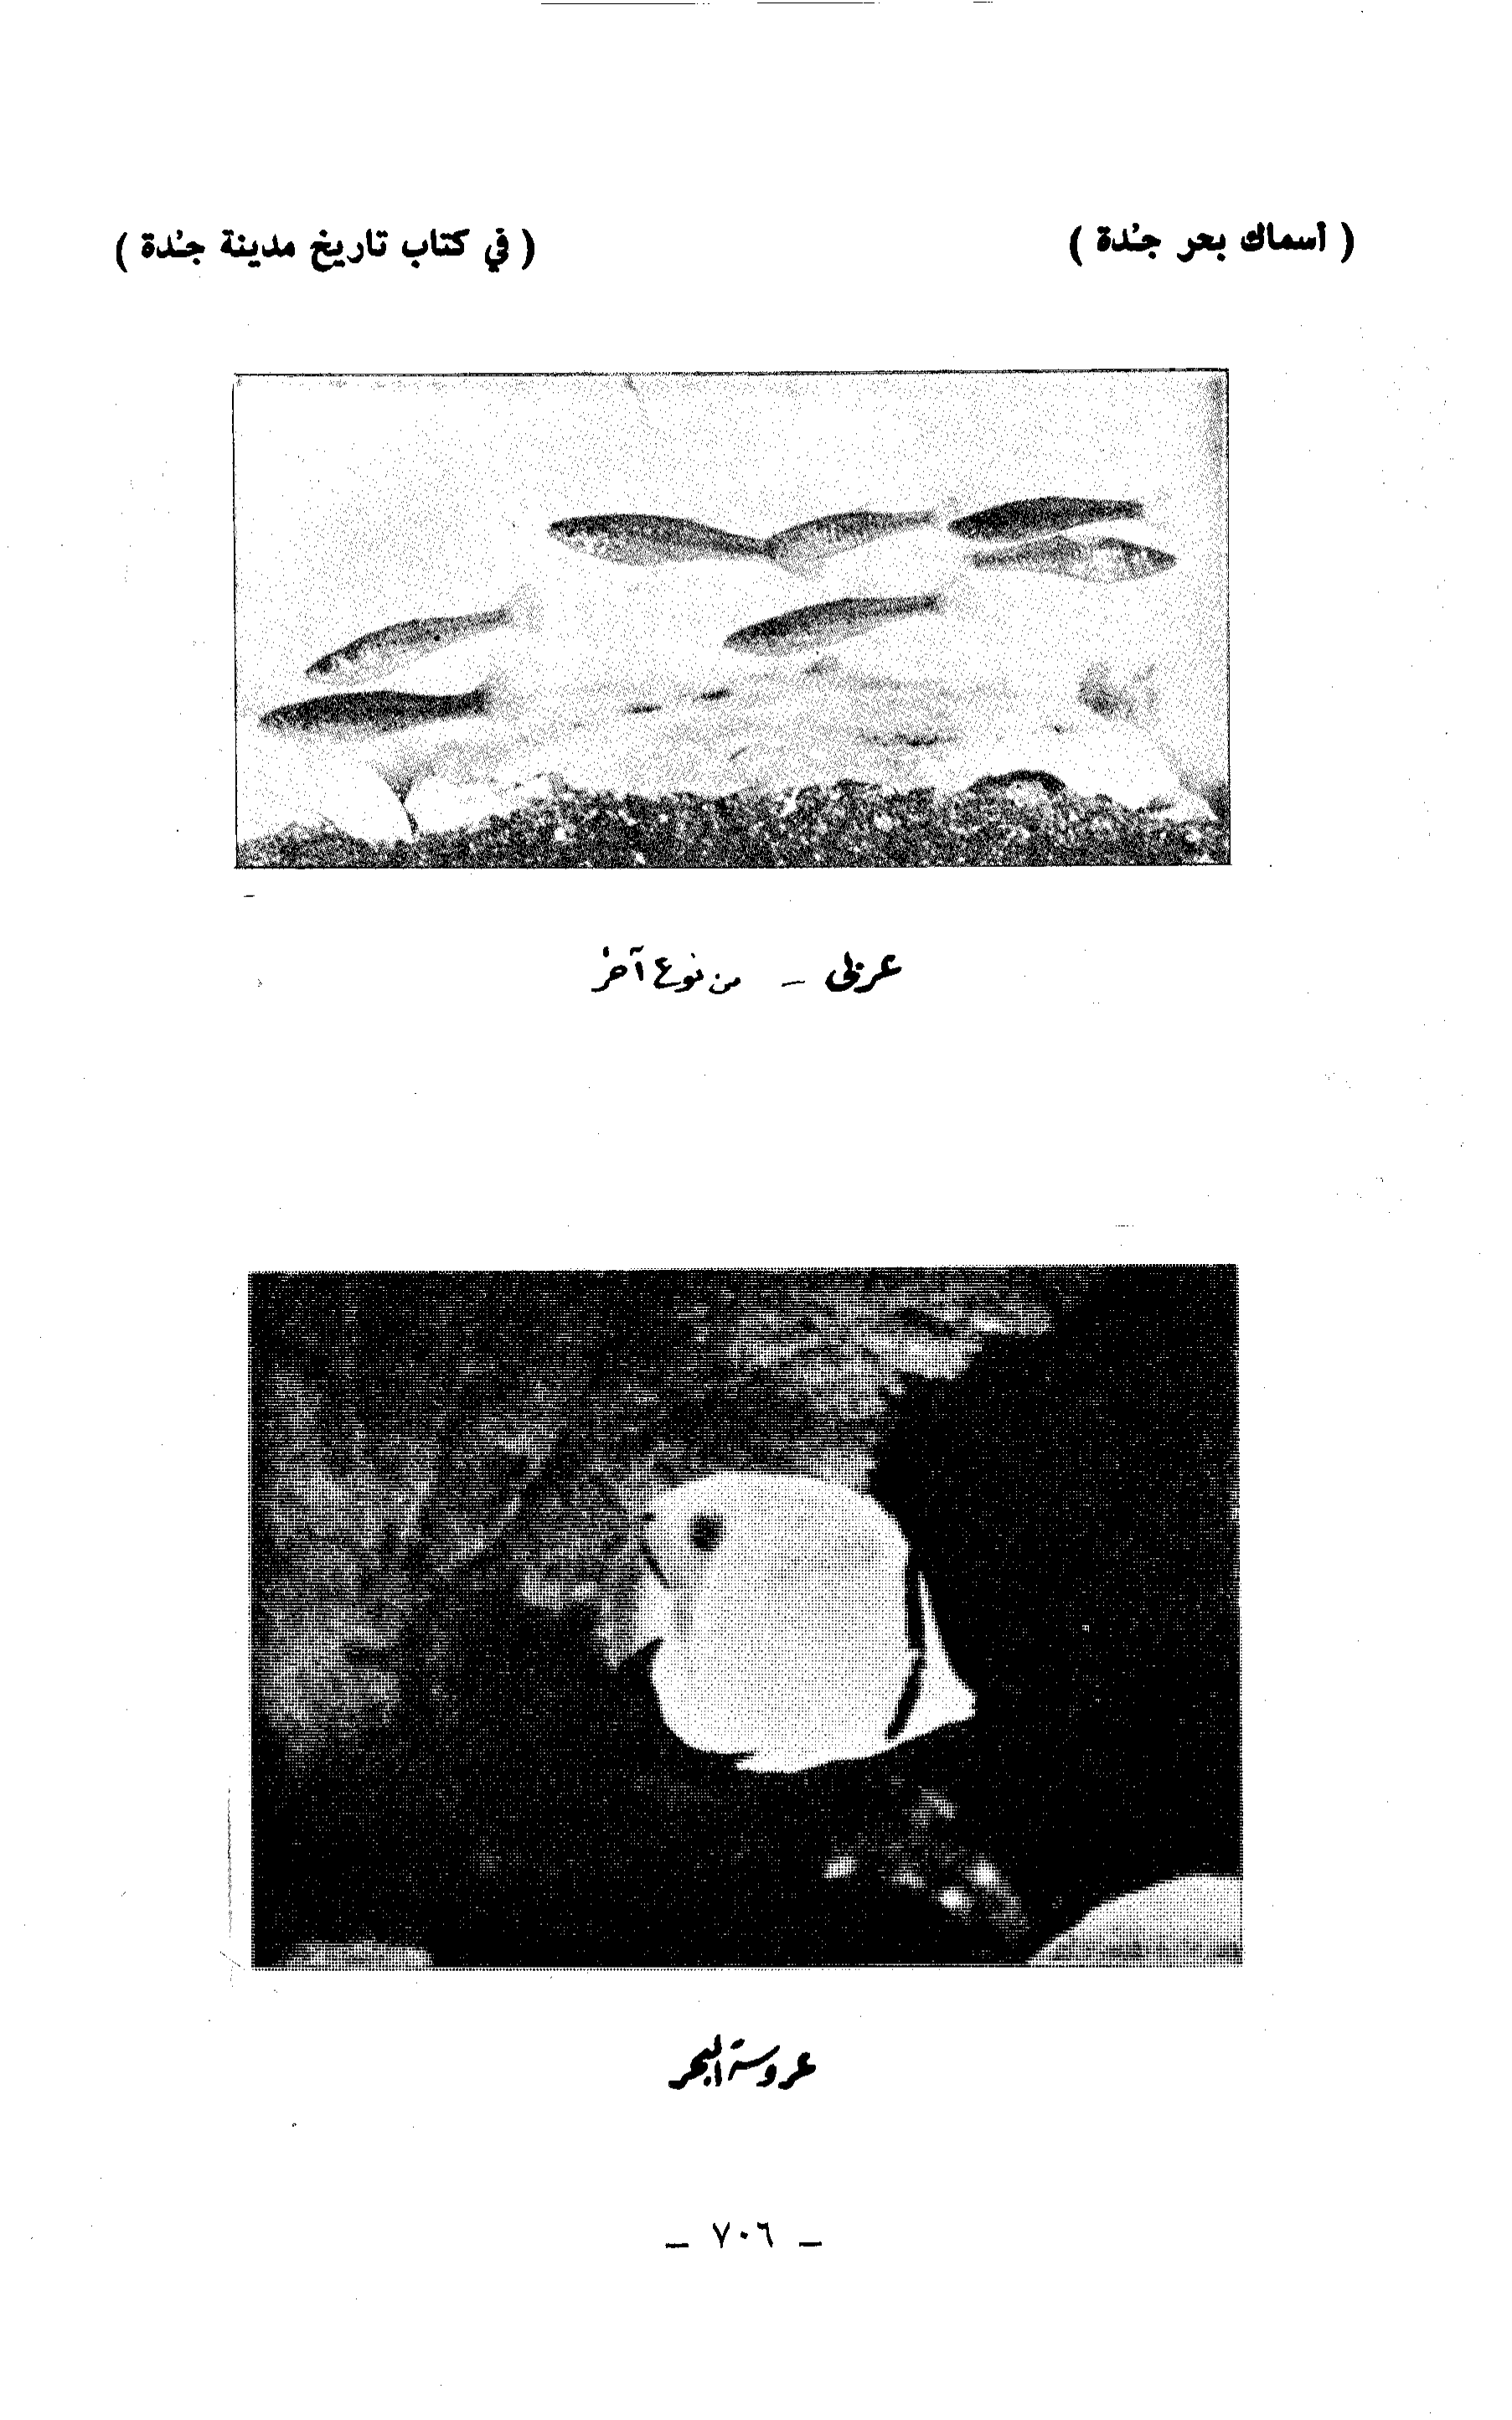 ( أسماك بحر جُدة ) ( في كتاب تاريخ مدينة جُدة )
عربي - من نوع آخر
عروسة البحر
- ٧٠٦ -